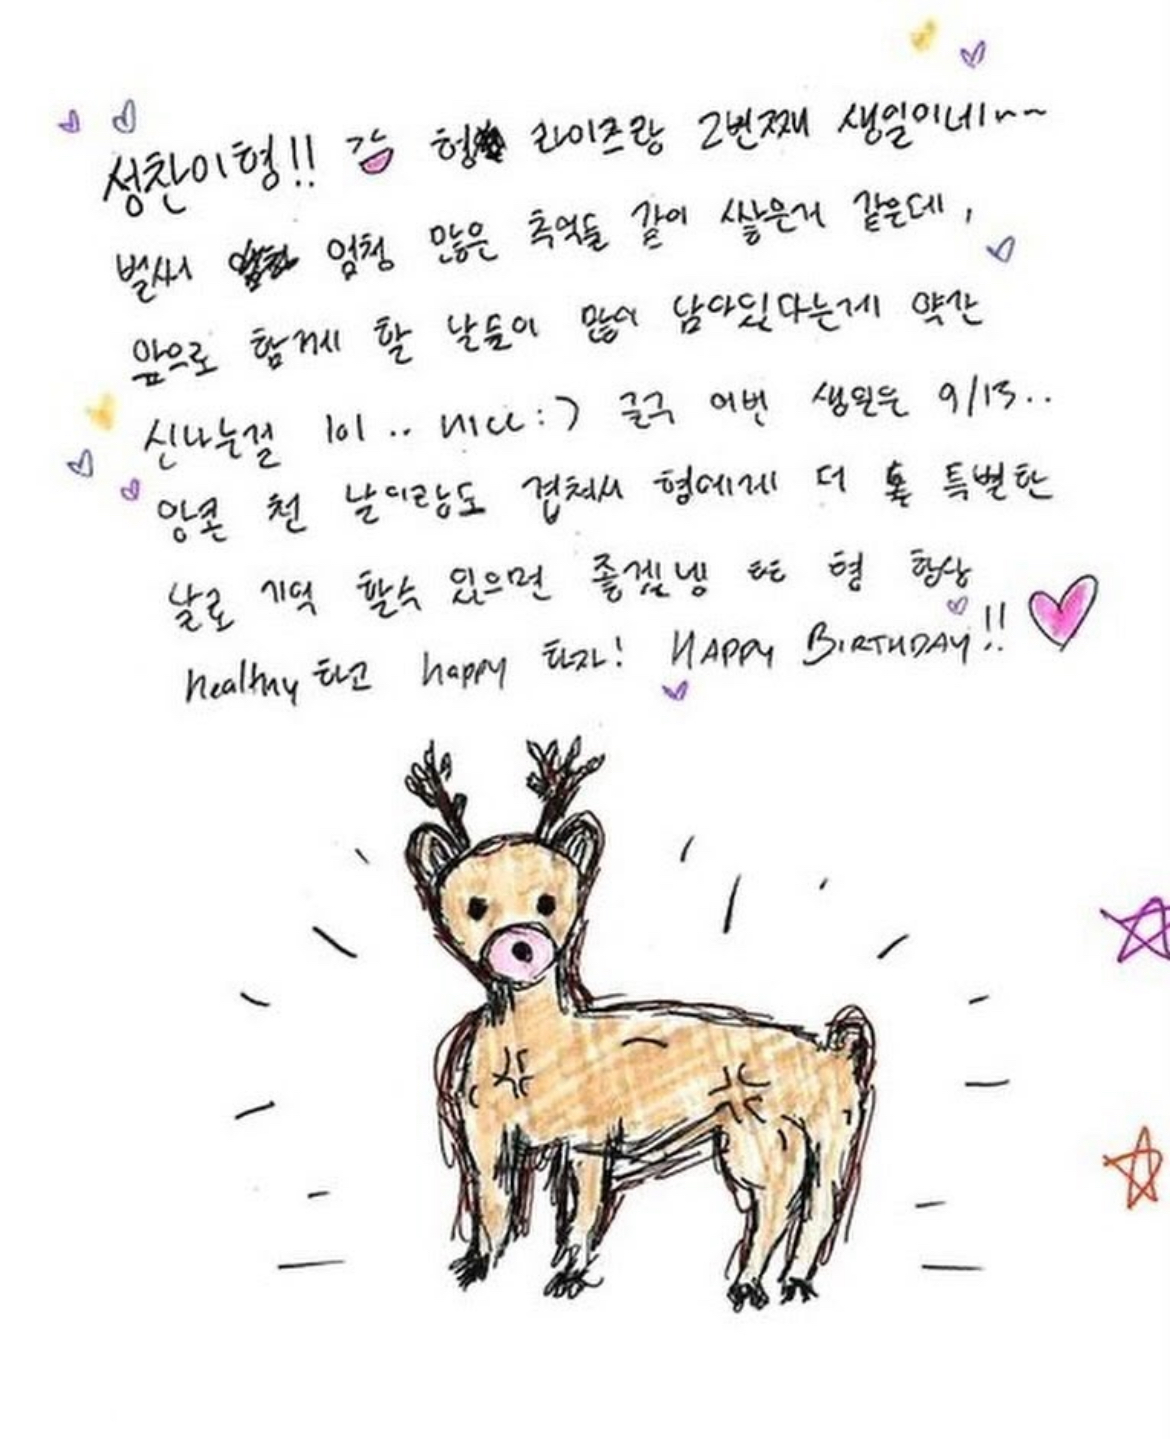 성찬이형!! 형 라이즈랑 2번째 생일이네~~
벌써 엄청 많은 추억들 같이 쌓은거 같은데,
앞으로 함께 할 날들이 많이 남아있다는게 약간
신나는걸 lol .. nice :) 글구 이번 생일은 9/13..
앙콘 첫 날이랑도 겹쳐서 형에게 더 특별한
날로 기억 할수 있으면 좋겠넹 또 형 항상
healthy 하고 happy 하자! HAPPY BIRTHDAY!!